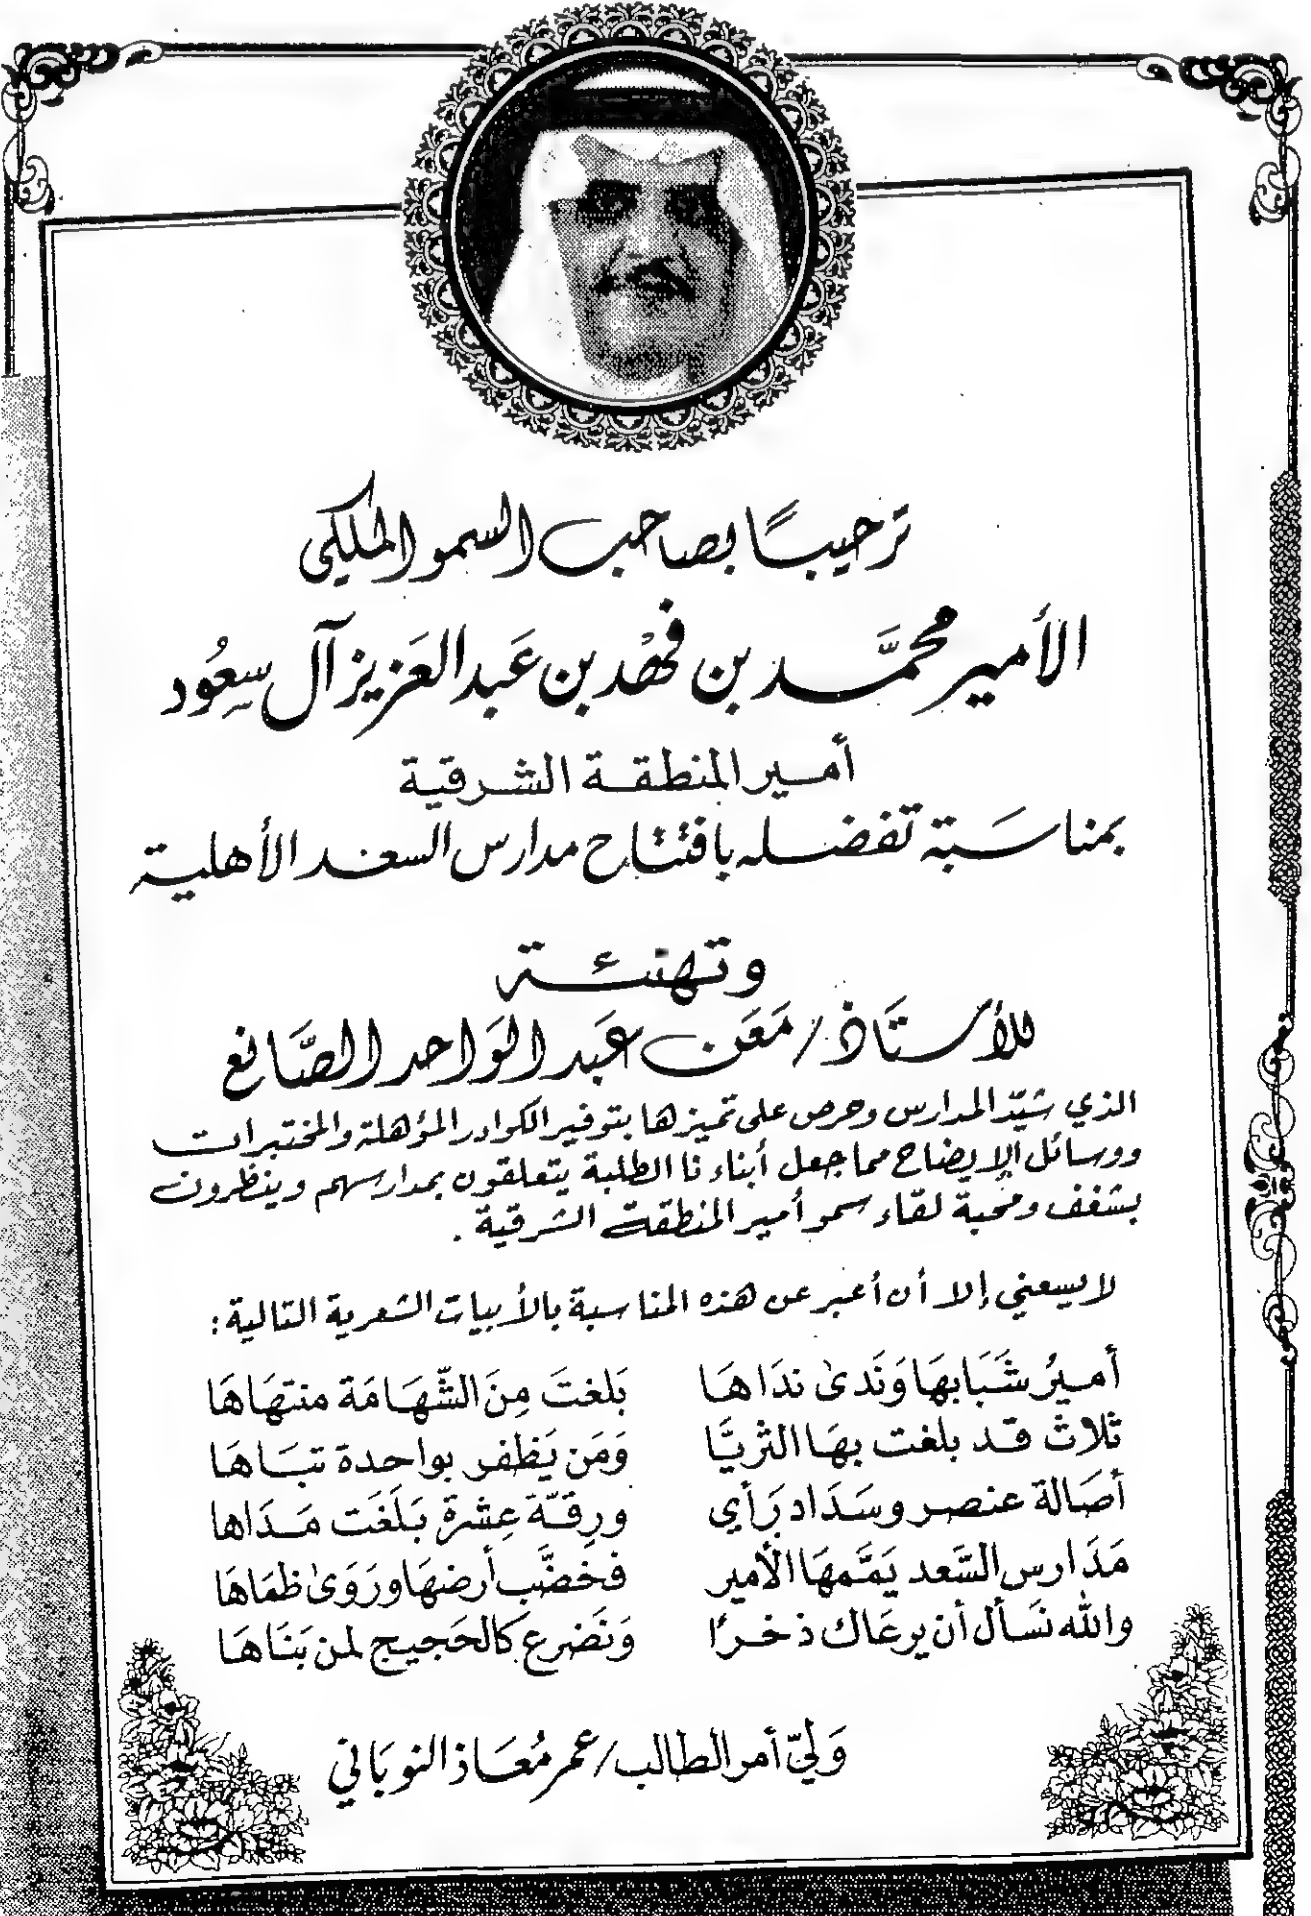 ترحيبًا بصاحب السمو الملكي
الأمير محمَّد بن فهْد بن عَبد العَزيز آل سعُود
أمير المنطقة الشرقية
بمناسَبة تفضله بافتتاح مدارس السعد الأهلية
وتهنئة
للأستَاذ / مَعَن عَبد الوَاحد الصَّانع
الذي شيّد المدارس وحرص على تميزها بتوفير الكوادر المؤهلة والمختبرات
ووسائل الإيضاح مما جعل أبناءنا الطلبة يتعلقون بمدارسهم وينظرون
بشغف ومحبة لقاء سمو أمير المنطقة الشرقية .
لا يسعني إلا أن أعبر عن هذه المناسبة بالأبيات الشعرية التالية :
أميرُ شَبَابهَا وَندىٰ ندَاهَا بَلغتَ مِنَ الشّهَامَة منتهَاهَا
ثلاثٌ قد بلغت بهَا الثريَّا وَمَن يَظفر بواحدة تبَاهَا
أصَالة عنصر وسَدَاد رَأي ورِقّة عِشرة بَلَغَت مَدَاها
مَدَارس السَّعد يَمَّمهَا الأمير فخضَّب أرضهَا ورَوَىٰ ظمَاهَا
والله نسَأل أن يرعَاك ذخرًا وَنَضرع كالحَجيج لمن بَنَاهَا
وَليّ أمر الطالب / عمر مُعَاذ النوبَاني